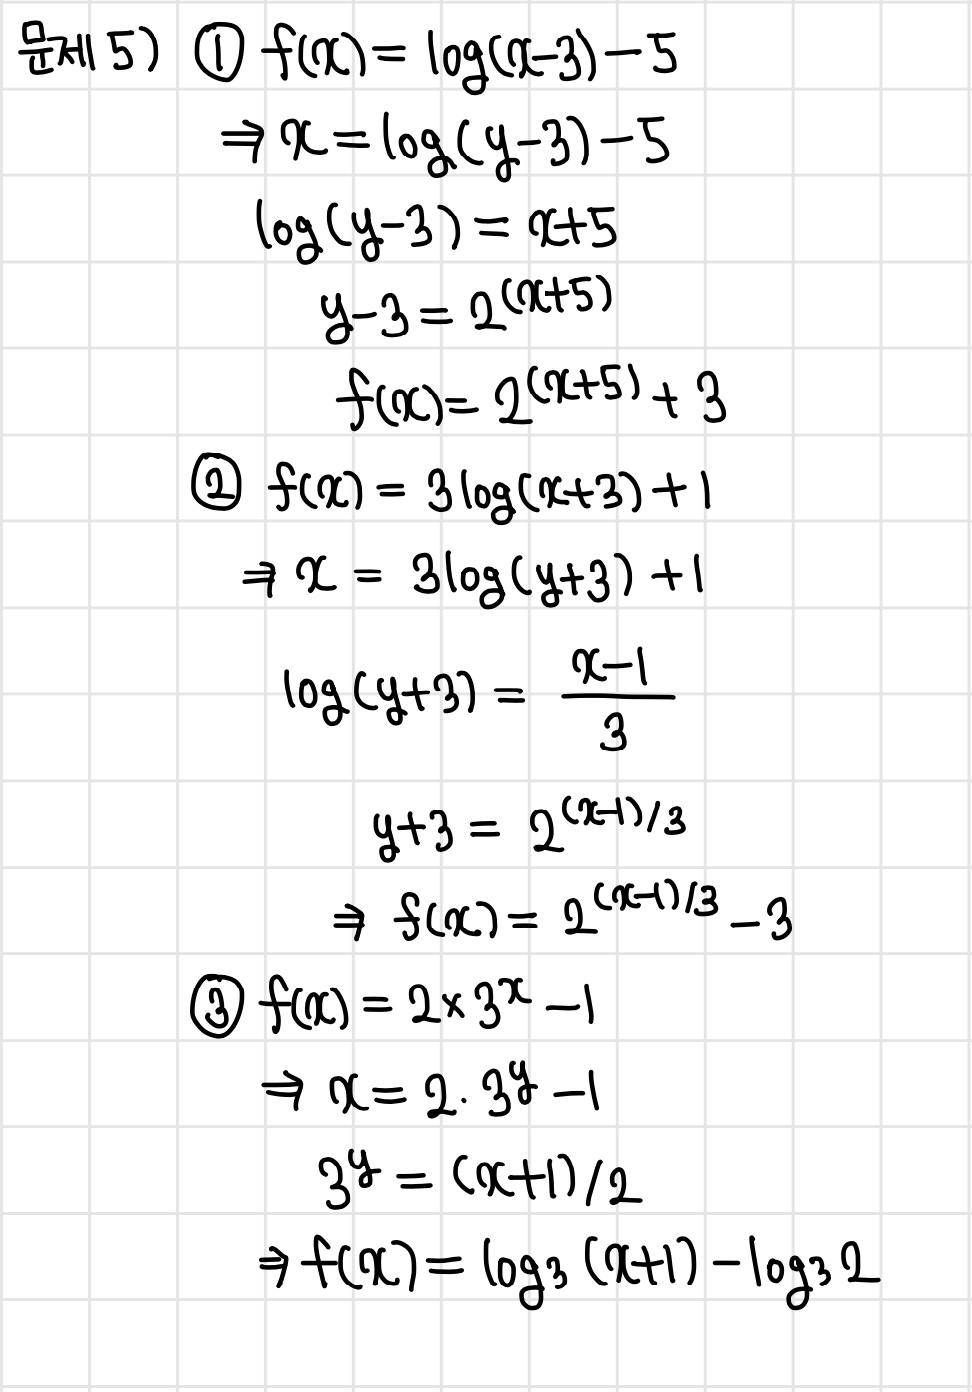 문제 5) ① f(x) = log(x-3) - 5
⇒ x = log(y-3) - 5
log(y-3) = x+5
y-3 = 2^(x+5)
f(x) = 2^(x+5) + 3
② f(x) = 3log(x+3) + 1
⇒ x = 3log(y+3) + 1
log(y+3) = (x-1)/3
y+3 = 2^(x-1)/3
⇒ f(x) = 2^(x-1)/3 - 3
③ f(x) = 2×3^x - 1
⇒ x = 2·3^y - 1
3^y = (x+1)/2
⇒ f(x) = log₃(x+1) - log₃2